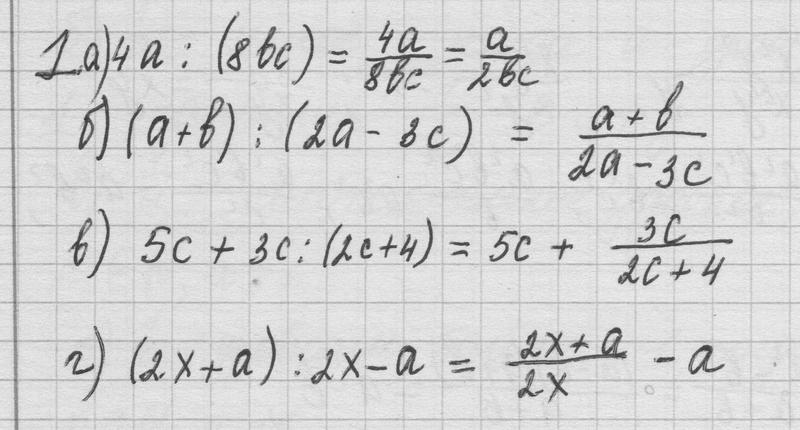 1 а) 4a : (8bc) = 4a/8bc = a/2bc
б) (a+b) : (2a - 3c) = a+b/2a-3c
в) 5c + 3c : (2c+4) = 5c + 3c/2c+4
г) (2x+a) : 2x-a = 2x+a/2x - a